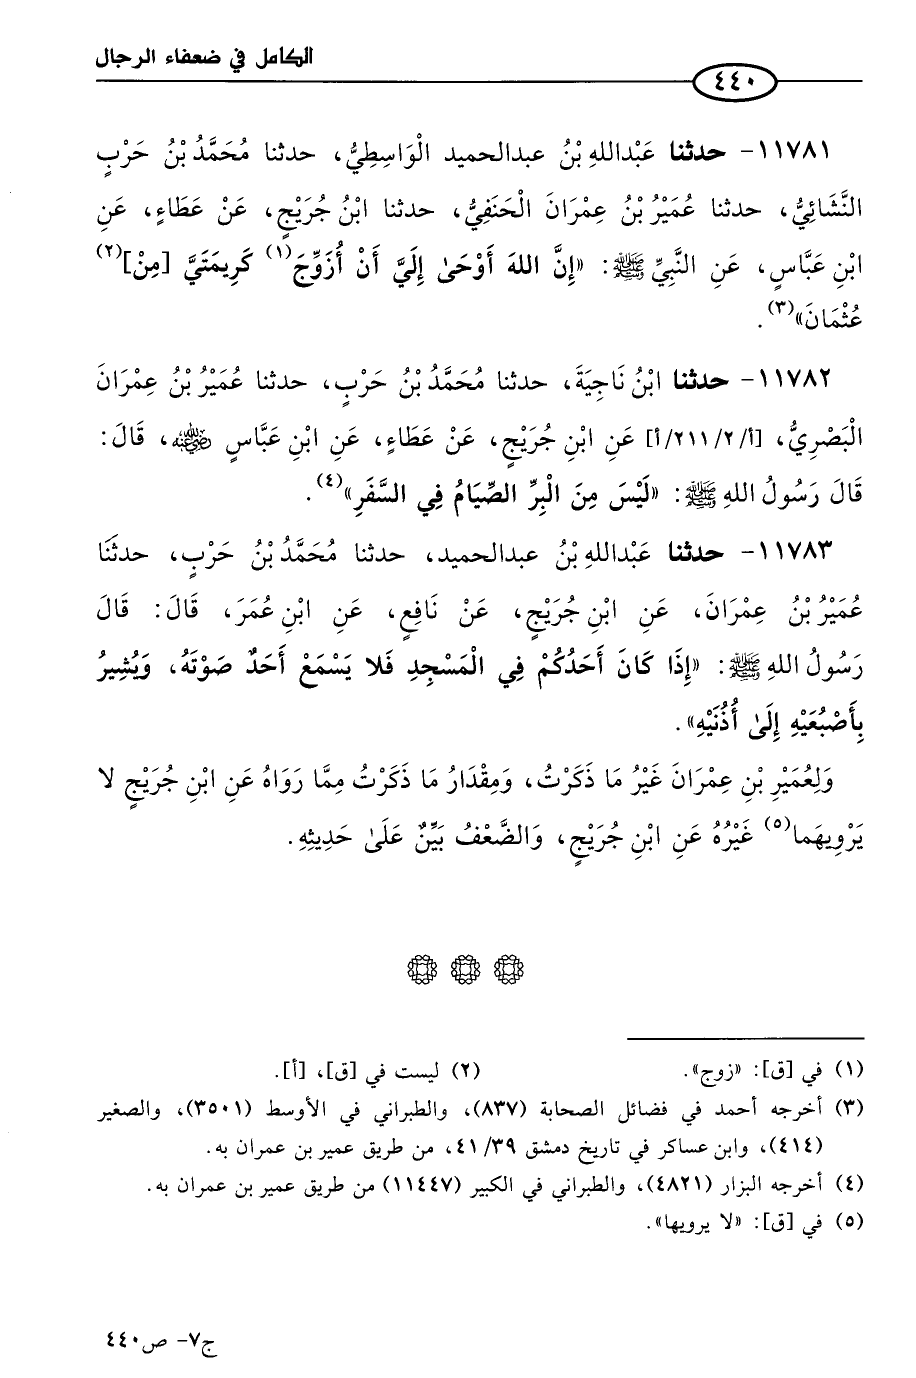 الكامل في ضعفاء الرجال
٤٤٠
١١٧٨١- حدثنا عَبْداللهِ بْنُ عبدالحميد الْوَاسِطِيُّ، حدثنا مُحَمَّدُ بْنُ حَرْبٍ
النَّشَائِيُّ، حدثنا عُمَيْرُ بْنُ عِمْرَانَ الْحَنَفِيُّ، حدثنا ابْنُ جُرَيْجٍ، عَنْ عَطَاءٍ، عَنِ
ابْنِ عَبَّاسٍ، عَنِ النَّبِيِّ ﷺ: «إِنَّ اللهَ أَوْحَىٰ إِلَيَّ أَنْ أُزَوِّجَ(١) كَرِيمَتَيَّ [مِنْ](٢)
عُثْمَانَ»(٣).
١١٧٨٢- حدثنا ابْنُ نَاجِيَةَ، حدثنا مُحَمَّدُ بْنُ حَرْبٍ، حدثنا عُمَيْرُ بْنُ عِمْرَانَ
الْبَصْرِيُّ، [أ/٢/٢١١/أ] عَنِ ابْنِ جُرَيْجٍ، عَنْ عَطَاءٍ، عَنِ ابْنِ عَبَّاسٍ رضي الله عنه، قَالَ:
قَالَ رَسُولُ اللهِ ﷺ: «لَيْسَ مِنَ الْبِرِّ الصِّيَامُ فِي السَّفَرِ»(٤).
١١٧٨٣- حدثنا عَبْداللهِ بْنُ عبدالحميد، حدثنا مُحَمَّدُ بْنُ حَرْبٍ، حدثنَا
عُمَيْرُ بْنُ عِمْرَانَ، عَنِ ابْنِ جُرَيْجٍ، عَنْ نَافِعٍ، عَنِ ابْنِ عُمَرَ، قَالَ: قَالَ
رَسُولُ اللهِ ﷺ: «إِذَا كَانَ أَحَدُكُمْ فِي الْمَسْجِدِ فَلا يَسْمَعْ أَحَدٌ صَوْتَهُ، وَيُشِيرُ
بِأَصْبُعَيْهِ إِلَىٰ أُذُنَيْهِ».
وَلِعُمَيْرِ بْنِ عِمْرَانَ غَيْرُ مَا ذَكَرْتُ، وَمِقْدَارُ مَا ذَكَرْتُ مِمَّا رَوَاهُ عَنِ ابْنِ جُرَيْجٍ لا
يَرْوِيهَما(٥) غَيْرُهُ عَنِ ابْنِ جُرَيْجٍ، وَالضَّعْفُ بَيِّنٌ عَلَىٰ حَدِيثِهِ.
(١) في [ق]: «زوج». (٢) ليست في [ق]، [أ].
(٣) أخرجه أحمد في فضائل الصحابة (٨٣٧)، والطبراني في الأوسط (٣٥٠١)، والصغير
(٤١٤)، وابن عساكر في تاريخ دمشق ٣٩/ ٤١، من طريق عمير بن عمران به.
(٤) أخرجه البزار (٤٨٢١)، والطبراني في الكبير (١١٤٤٧) من طريق عمير بن عمران به.
(٥) في [ق]: «لا يرويها».
ج٧- ص٤٤٠